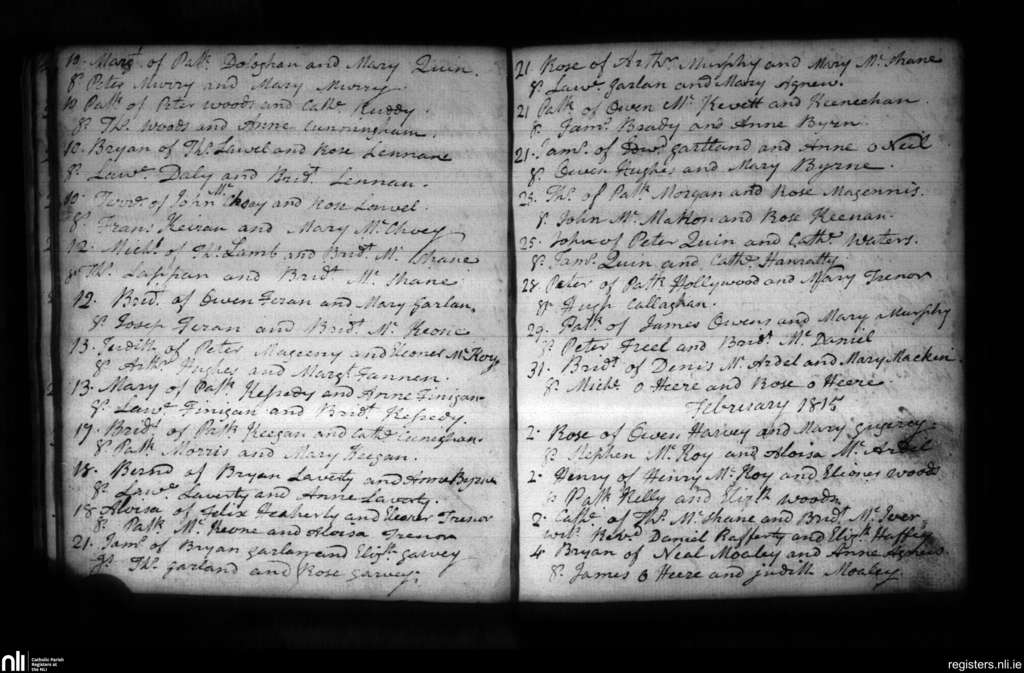 10. Margt. of Patk. Dologhan and Mary Quin.
Sp. Peter Murry and Mary Murry.
10 Patk. of Peter Woods and Cathe. Ruddy.
Sp. Ths. Woods and Anne Cunningham.
10. Bryan of Ths. Lawel and Rose Lennan
Sp. Lawe. Daly and Bridt. Lennan.
10. of John Mc and Rose
Sp. Frans. Keiran and Mary Mc.
12. Michl. of Ths. Lamb and Bridt. Mc. Shane
Sp. Ths. Lappan and Bridt. Mc. Shane.
12. Bridt. of Owen Feran and Mary Garlan.
Sp. Josep Feran and Bridt. Mc. Keone
13. Judith. of Peter Mageeny and Eleoner Mc. Koy
Sp. Arthr. Hughes and Margt. Fannen.
13. Mary of Patk. and Anne Finigan
Sp. Lawe. Finigan and Bridt.
17. Bridt. of Patk. Keegan and Cathe.
Sp. Patk. Morris and Mary Keegan.
18. of Bryan Laverty and Anne Byrne
Sp. Lawe. Laverty and Anne Laverty.
18 Aloisa of Felix Heaherty and Eleoner Trenor
Sp. Patk. Mc. Keone and Aloisa Trenor
21. Jams. of Bryan Garlan and Elizh. Garvey
Sp. Ths. Garland and Rose Garvey.
21 Rose of Arthr. Murphy and Mary Mc. Shane
Sp. Lawe. Garlan and Mary Agnew.
21 Patk. of Owen Mc. Kevett and Keenechan
Sp. Jams. Brady and Anne Byrn.
21. Jams. of Edwd. Gartland and Anne o Neil
Sp. Owen Hughes and Mary Byrne.
23. Ths. of Patk. Morgan and Rose Magennis.
Sp. John Mc. Mahon and Rose Keenan.
25. John of Peter Quin and Cathe. Waters.
Sp. Jams. Quin and Cathe. Hanratty.
28 Peter of Patk. Hollywood and Mary Trenor
Sp. Hugh Callaghan.
29. Patk. of James Owens and Mary Murphy
Sp. Peter Freel and Bridt. Mc. Daniel
31. Bridt. of Denis Mc. Ardel and Mary Mackin.
Sp. Michl. o Heere and Rose o Heere.
February 1815
2. Rose of Owen Harvey and Mary
Sp. Stephen Mc. Koy and Aloisa Mc. Ardel
2. Henry of Henry Mc. Koy and Elioner Woods
Sp. Patk. Kelly and Elizh. Woods
2. Cathe. of Ths. Mc. Shane and Bridt. Mc. Iver
Revd. Daniel Rafferty and Elizh.
4 Bryan of Neal Moaley and Anne
Sp. James o Heere and Judith Moaley.
nli
Catholic Parish
Registers at
the NLI
registers.nli.ie